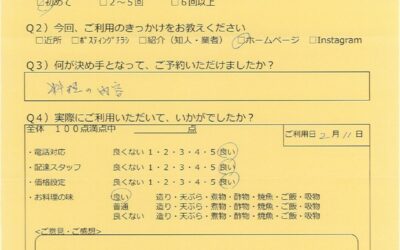 ☑初めて　□2～5回　□6回以上
Q2）今回、ご利用のきっかけをお教えください
□近所　□ポスティングチラシ　□紹介（知人・業者）　☑ホームページ　□Instagram
Q3）何が決め手となって、ご予約いただけましたか？
料理の内容
Q4）実際にご利用いただいて、いかがでしたか？
全体　100点満点中　　　　点
ご利用日 2月11日
・電話対応　良くない 1・2・3・4・5 良い
・配達スタッフ　良くない 1・2・3・4・5 良い
・価格設定　良くない 1・2・3・4・5 良い
・お料理の味　良い　造り・天ぷら・煮物・酢物・焼魚・ご飯・吸物
普通　造り・天ぷら・煮物・酢物・焼魚・ご飯・吸物
良くない　造り・天ぷら・煮物・酢物・焼魚・ご飯・吸物
＜ご意見・ご感想＞